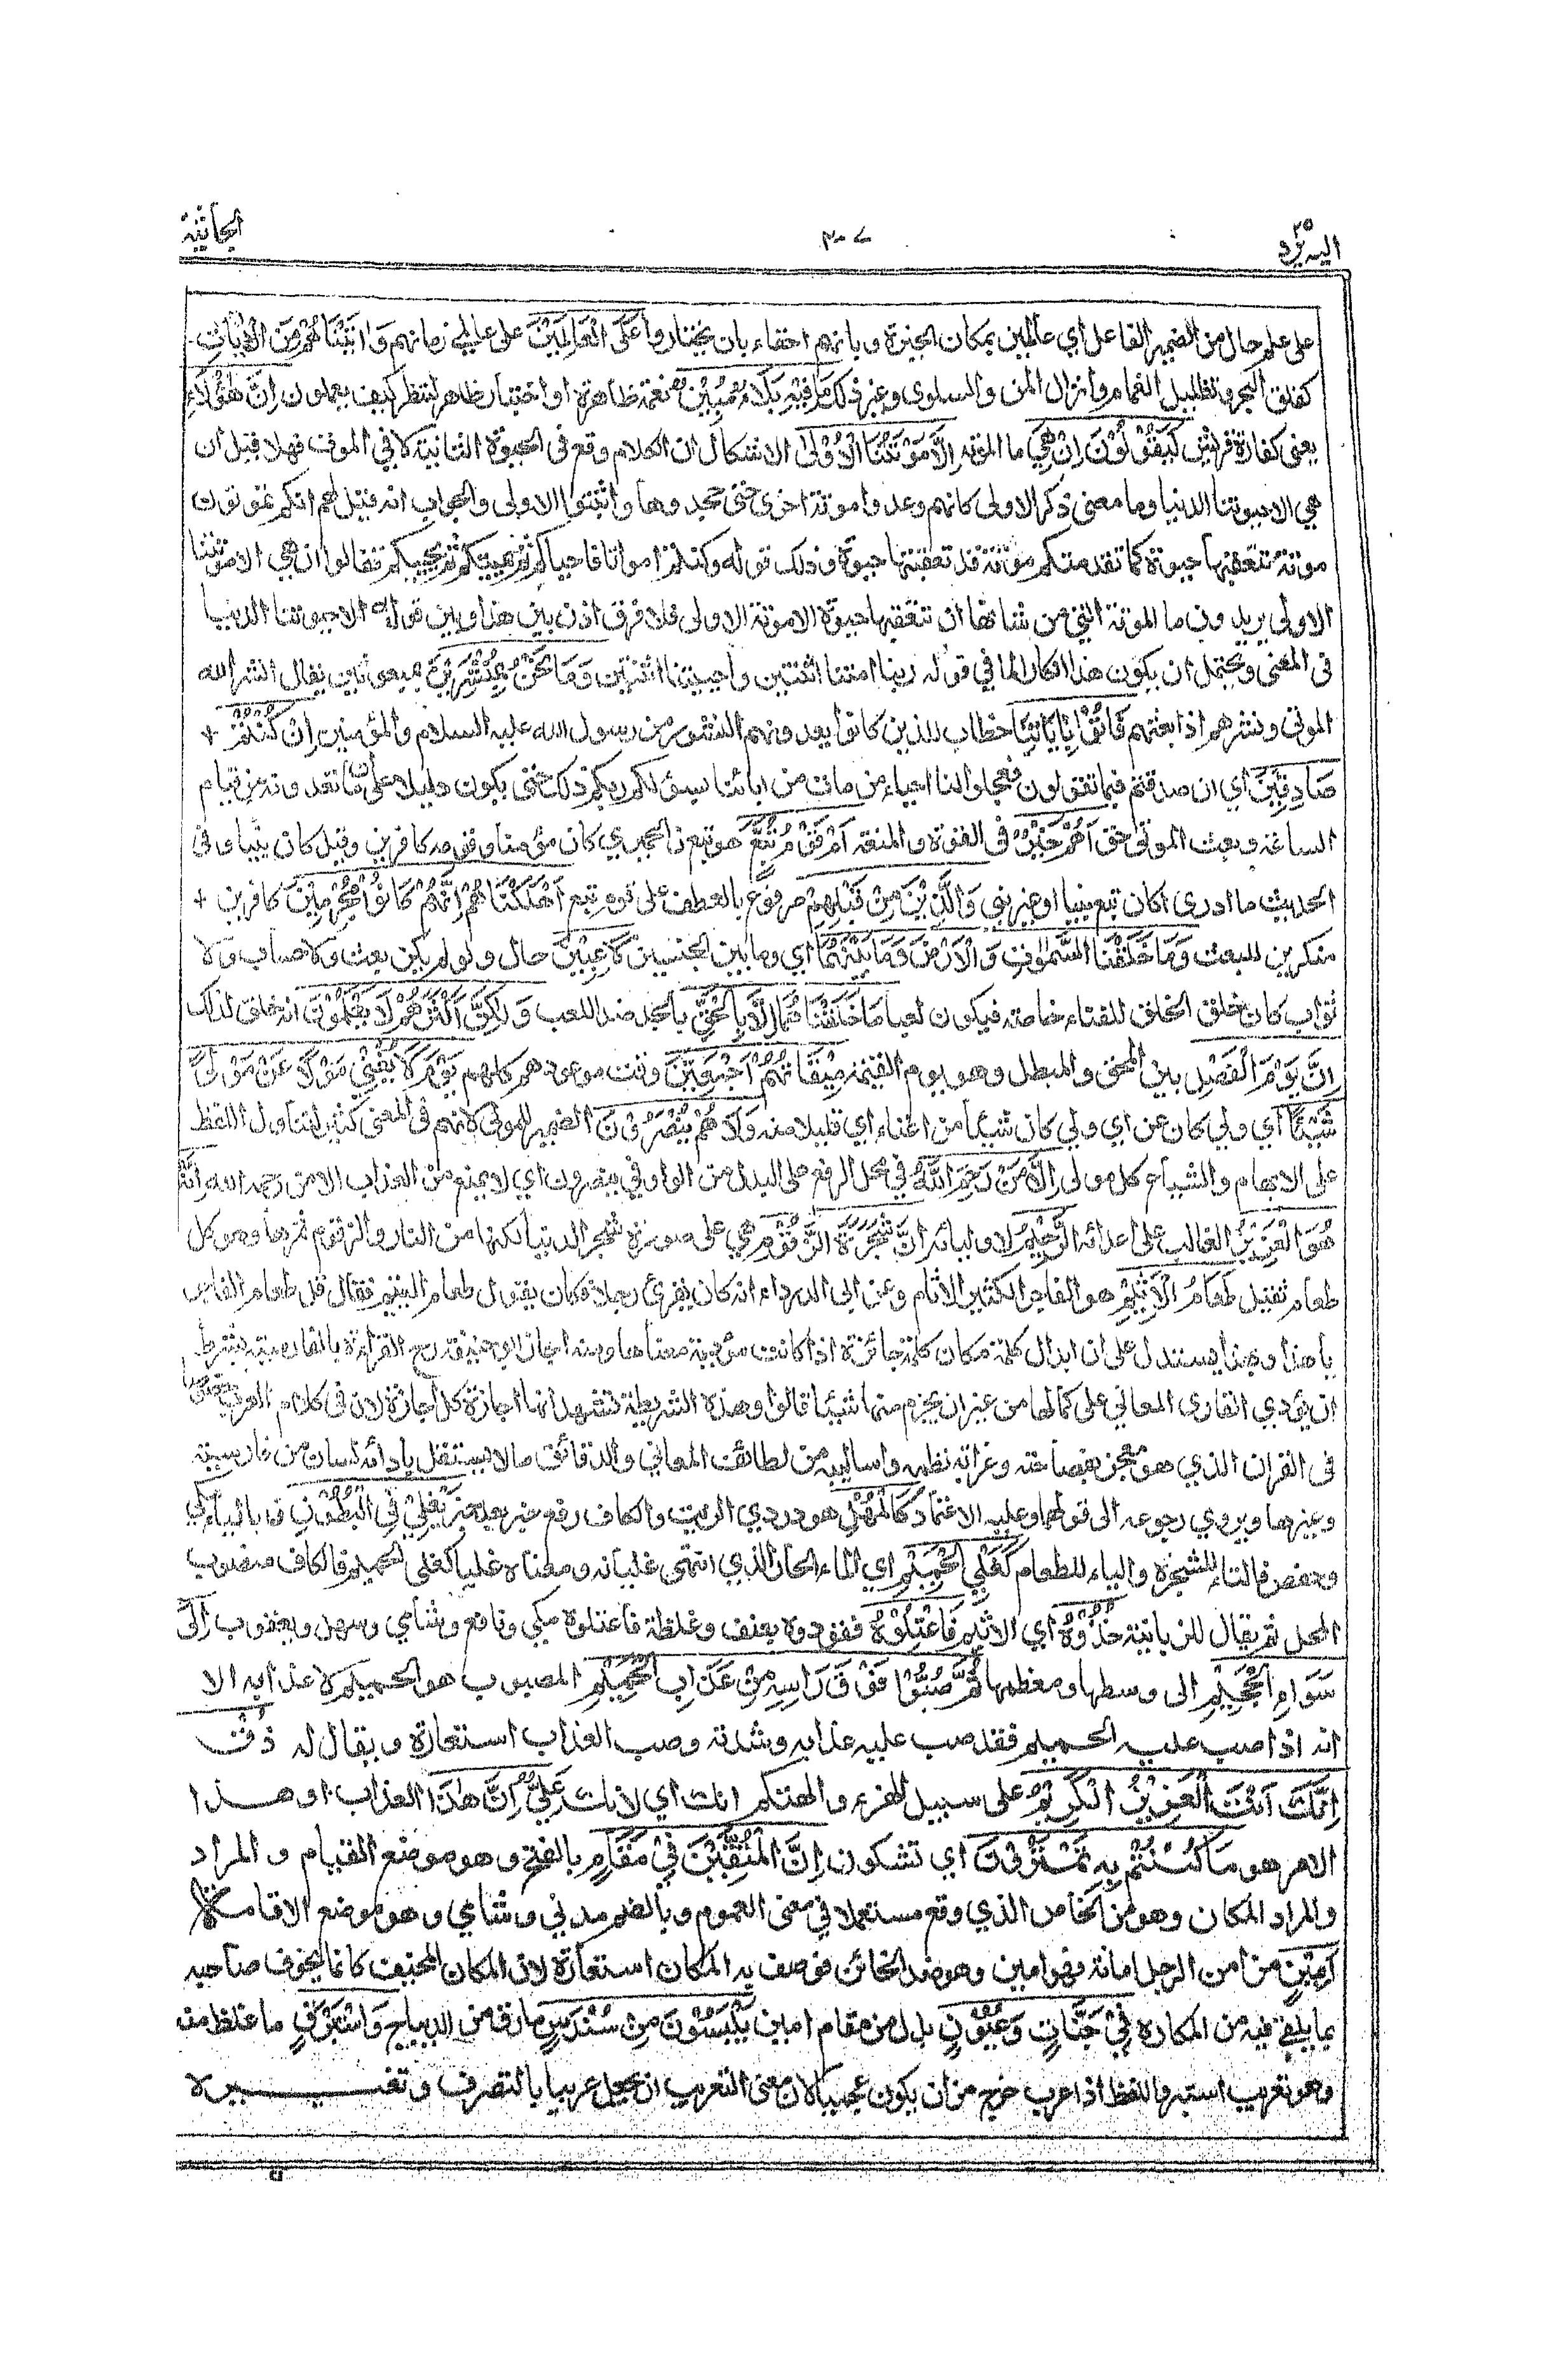 اليه يرد ٢٥
٣٠٧
الجاثية
على علم حال من الضمير الفاعل اي عالمين بمكان الخيرة وبانهم احقاء بان يختاروا عَلَى الْعَالَمِيْنَ على عالمي زمانهم وَاٰتَيْنَاهُمْ مِّنَ الْاٰيَاتِ
كفلق البحر وتظليل الغمام وانزال المن والسلوى وغير ذلك مَا فِيْهِ بَلَاءٌ مُّبِيْنٌ نعمة ظاهرة او اختبار ظاهر لننظر كيف يعملون اِنَّ هٰؤُلَاءِ
يعني كفار قريش لَيَقُوْلُوْنَ اِنْ هِيَ ما الموتة اِلَّا مَوْتَتُنَا الْاُوْلٰى الاشكال ان الكلام وقع فى الحيوة الثانية لا في الموت فهلا قيل ان
هي الا حيوتنا الدنيا وما معنى ذكر الاولى كانهم وعدوا موتة اخرى حتى جحدوها واثبتوا الاولى والجواب انه قيل لهم انكم تموتون
موتة تتعقبها حيوة كما تقدمتكم موتة قد تعقبتها حيوة وذلك قوله وكنتم امواتا فاحياكم ثم يميتكم ثم يحييكم فقالوا ان هي الا موتتنا
الاولى يريدون ما الموتة التي من شانها ان تتعقبها حيوة الا موتة الاولى فلا فرق اذن بين هذا وبين قوله الا حيوتنا الدنيا
فى المعنى ويحتمل ان يكون هذا انكارا لما في قوله ربنا امتنا اثنتين واحييتنا اثنتين وَمَا نَحْنُ بِمُنْشَرِيْنَ بمبعوثين يقال انشر الله
الموتى ونشرهم اذا بعثهم فَأْتُوْا بِاٰبَائِنَا خطاب للذين كانوا يعدونهم النشور من رسول الله عليه السلام والمؤمنين اِنْ كُنْتُمْ +
صَادِقِيْنَ اي ان صدقتم فيما تقولون فعجلوا لنا احياء من مات من ابائنا بسؤالكم ربكم ذلك حتى يكون دليلا على ان ما تعدونه من قيام
الساعة وبعث الموتى حق اَهُمْ خَيْرٌ فى القوة والمنعة اَمْ قَوْمُ تُبَّعٍ هو تبع الحميري كان مؤمنا وقومه كافرين وقيل كان نبيا وفى
الحديث ما ادرى اكان تبع نبيا او غير نبي وَالَّذِيْنَ مِنْ قَبْلِهِمْ مرفوع بالعطف على قوم تبع اَهْلَكْنَاهُمْ اِنَّهُمْ كَانُوْا مُجْرِمِيْنَ كافرين +
منكرين للبعث وَمَا خَلَقْنَا السَّمٰوٰتِ وَالْاَرْضَ وَمَا بَيْنَهُمَا اي وما بين الجنسين لَاعِبِيْنَ حال ولو لم يكن بعث ولا حساب ولا
ثواب كان خلق الخلق للفناء خاصة فيكون لعبا مَا خَلَقْنَاهُمَا اِلَّا بِالْحَقِّ بالجد ضد اللعب وَلٰكِنَّ اَكْثَرَهُمْ لَا يَعْلَمُوْنَ انه خلق لذلك
اِنَّ يَوْمَ الْفَصْلِ بين المحق والمبطل وهو يوم القيمة مِيْقَاتُهُمْ اَجْمَعِيْنَ وقت موعدهم كلهم يَوْمَ لَا يُغْنِيْ مَوْلًى عَنْ مَوْلًى
شَيْئًا اي ولي كان عن اي ولي كان شيئا من اغناء اي قليلا منه وَلَا هُمْ يُنْصَرُوْنَ الضمير للمولى لانهم فى المعنى كثير لتناول اللفظ
على الابهام والشياع كل مولى اِلَّا مَنْ رَحِمَ اللّٰهُ في محل الرفع على البدل من الواو في ينصرون اي لا يمنع من العذاب الا من رحمه الله اِنَّهٗ
هُوَ الْعَزِيْزُ الغالب على اعدائه الرَّحِيْمُ لاوليائه اِنَّ شَجَرَةَ الزَّقُّوْمِ هي على صورة شجر الدنيا لكنها من النار والزقوم ثمرها وهو كل
طعام ثقيل طَعَامُ الْاَثِيْمِ هو الفاجر الكثير الاثام وعن ابى الدرداء انه كان يقرئ رجلا فكان يقول طعام اليتيم فقال قل طعام الفاجر
يا هذا وبهذا يستدل على ان ابدال كلمة مكان كلمة جائزة اذا كانت مؤدية معناها ومنه اجاز ابو حنيفة رح القراءة بالفارسية بشرط
ان يؤدي القارى المعاني على كمالها من غير ان يخرم منها شيئا قالوا وهذه الشريطة تشهد انها اجازة كلا اجازة لان فى كلام العرب خصوصا
فى القران الذي هو معجز بفصاحته وغرابة نظمه واساليبه من لطائف المعاني والدقائق ما لا يستقل بادائه لسان من فارسية
وغيرها ويروى رجوعه الى قولهما وعليه الاعتماد كَالْمُهْلِ هو دردي الزيت والكاف رفع خبر بعد خبر يَغْلِيْ فِي الْبُطُوْنِ بالياء مكي
وحفص فالتاء للشجرة والياء للطعام كَغَلْيِ الْحَمِيْمِ اي الماء الحار الذي انتهى غليانه ومعناه غليا كغلي الحميم فالكاف منصوب
المحل ثم يقال للزبانية خُذُوْهُ اي الاثيم فَاعْتِلُوْهُ فقودوه بعنف وغلظة فاعتلوه مكي ونافع وشامي وسهل ويعقوب اِلٰى
سَوَاءِ الْجَحِيْمِ الى وسطها ومعظمها ثُمَّ صُبُّوْا فَوْقَ رَاسِهٖ مِنْ عَذَابِ الْحَمِيْمِ المصبوب هو الحميم لا عذابه الا
انه اذا صب عليه الحميم فقد صب عليه عذابه وشدته وصب العذاب استعارة ويقال له ذُقْ
اِنَّكَ اَنْتَ الْعَزِيْزُ الْكَرِيْمُ على سبيل الهزء والتهكم انك اي لانك عَلِيٌّ اِنَّ هٰذَا العذاب او هذا
الامر هو مَا كُنْتُمْ بِهٖ تَمْتَرُوْنَ اي تشكون اِنَّ الْمُتَّقِيْنَ فِيْ مَقَامٍ بالفتح وهو موضع القيام والمراد
والمراد المكان وهو من الخاص الذي وقع مستعملا في معنى العموم وبالضم مدني وشامي وهو موضع الاقامة
اَمِيْنٍ من امن الرجل امانة فهو امين وهو ضد الخائن فوصف به المكان استعارة لان المكان المخيف كانما يخوف صاحبه
بما يلقى فيه من المكاره فِيْ جَنَّاتٍ وَعُيُوْنٍ بدل من مقام امين يَلْبَسُوْنَ مِنْ سُنْدُسٍ ما رق من الديباج وَاِسْتَبْرَقٍ ما غلظ منه
وهو تعريب استبر واللفظ اذا عرب خرج من ان يكون عجميا لان معنى التعريب ان يجعل عربيا بالتصرف وتغييره لا